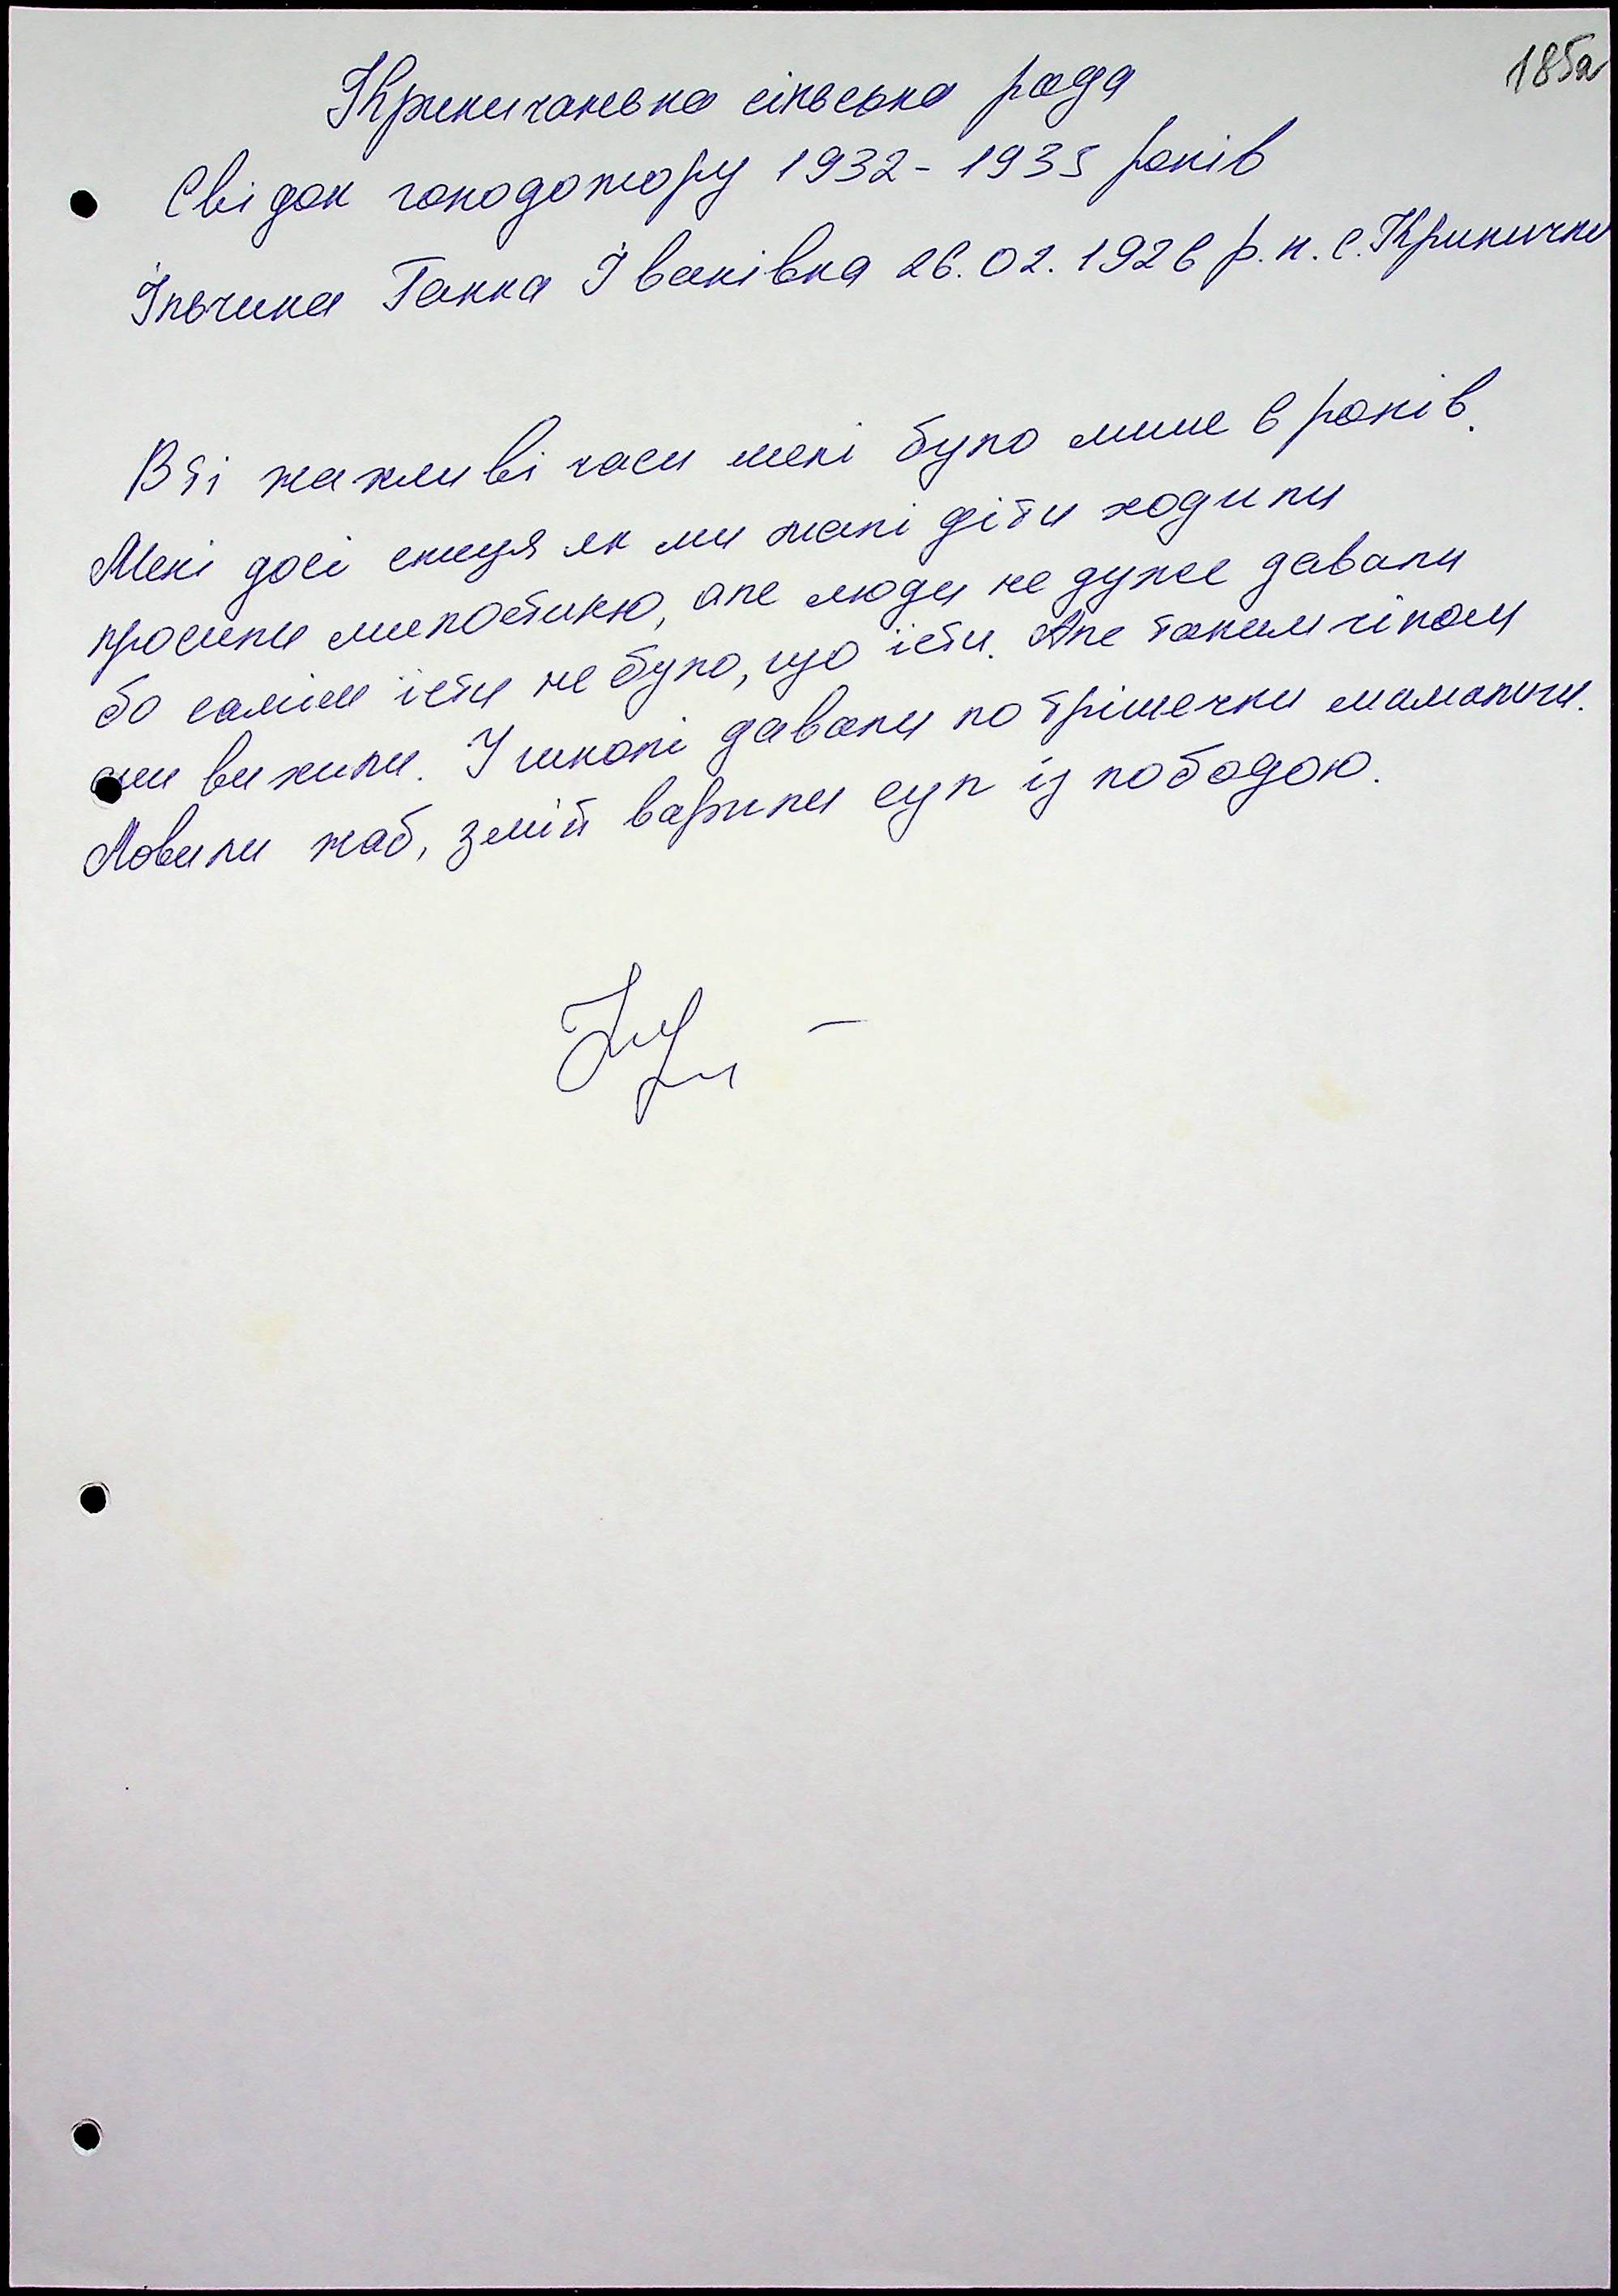 185а
Криничанська сільська рада
Свідок голодомору 1932-1935 років
Ільчина Ганна Іванівна 26.02.1926 р.н. с. Кринички
В ті жахливі часи мені було лише 6 років.
Мені досі сниця як ми малі діти ходили
просили милостиню, але люди не дуже давали
бо самім їсти не було, що їсти. Але таким чіном
ми вижили. У школі давали по трішечки мамалиги.
Ловили жаб, змій варили суп із лободою.